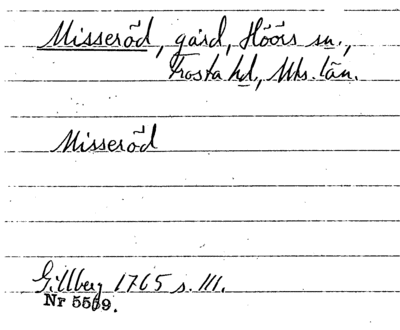 Misseröd, gård, Höörs sn.,
Frosta hd, Mhs. län.
Misseröd
Gillberg 1765 s. 111.
Nr 5569.